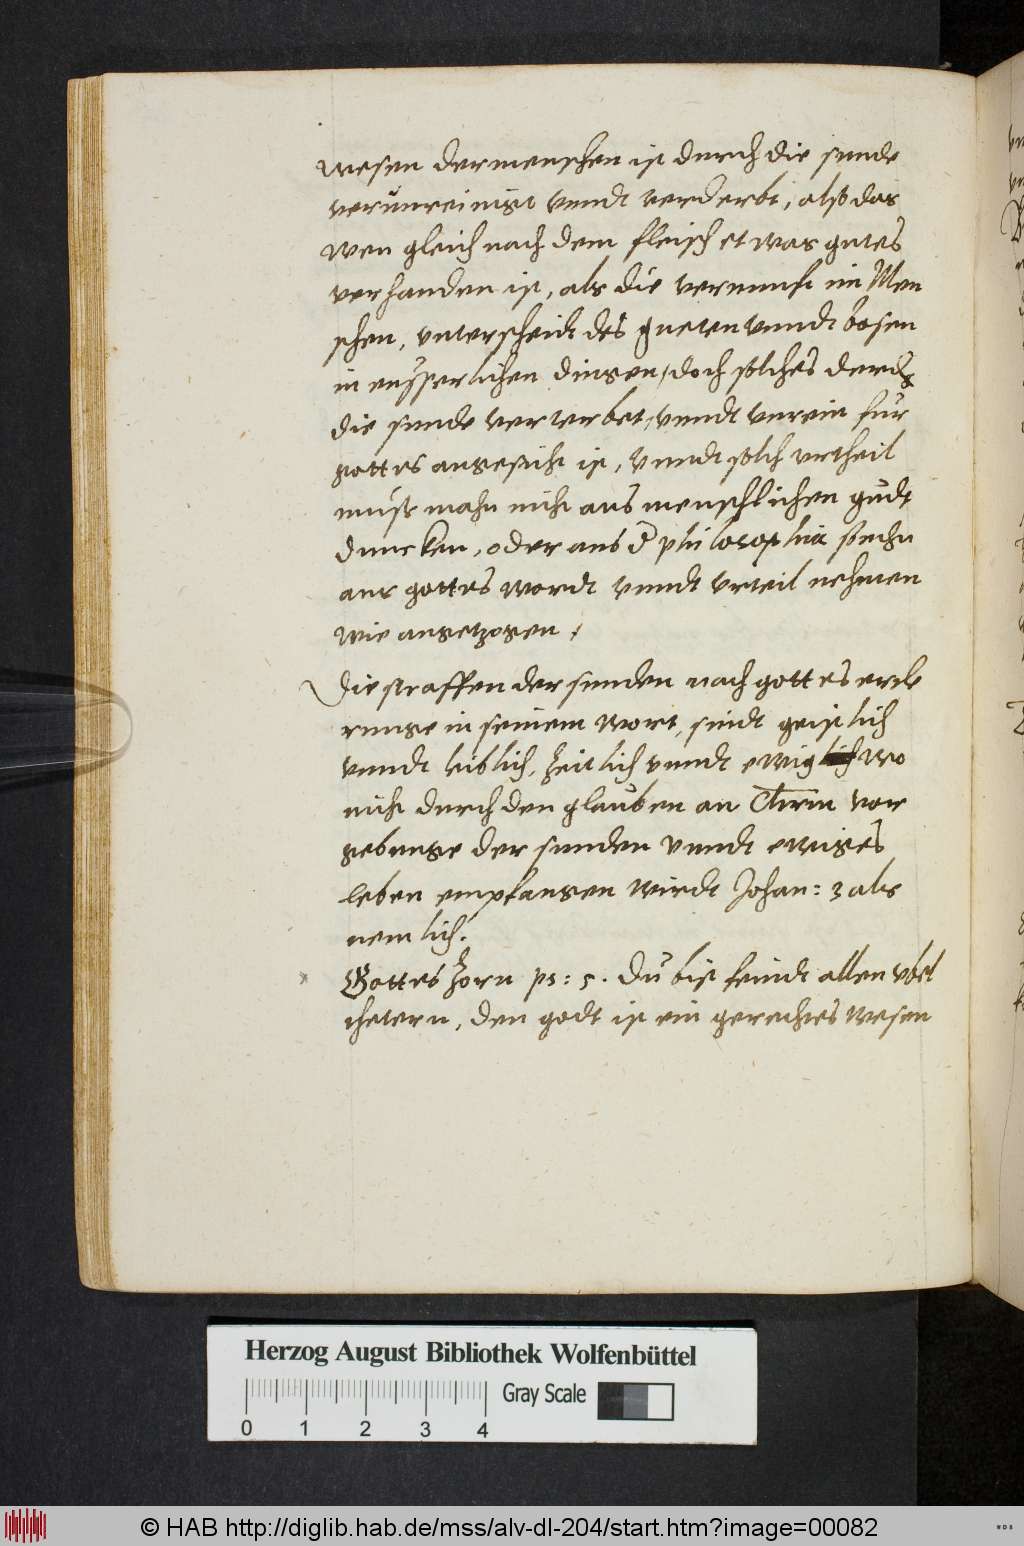 wesen der menschen ist durch die sunde
verunreinigt vnndt verderbt, also das
wen gleich nach dem fleisch etwas gutes
verhanden ist, als die vernunft im Men
schen, vnterscheidt des gueten vnndt bosen
in eusserlichen dingen, doch solches durchs
die sunde verterbet, vnndt vnrein fur
gottes angesicht ist, vnndt solch vrtheil
muss mahn nicht aus menschlichen gudt
duncken, oder aus d philosophia
aus gottes wordt vnndt vrteil nehmen
wie angetzogen,
Die straffen der sunden nach gottes ercle
runge in seinem wort, sindt geistlich
vnndt leiblich, zeitlich vnndt ewig wo
nicht durch den glauben an Christum vor
gebunge der sunden vnndt ewiges
leben empfangen wirdt Johan: 3 als
nemlich.
Gottes zorn ps: 5. Du bist feindt allen vbel
thetern, den godt ist ein gerechtes wesen
Herzog August Bibliothek Wolfenbüttel
Gray Scale
0 1 2 3 4
© HAB http://diglib.hab.de/mss/alv-dl-204/start.htm?image=00082